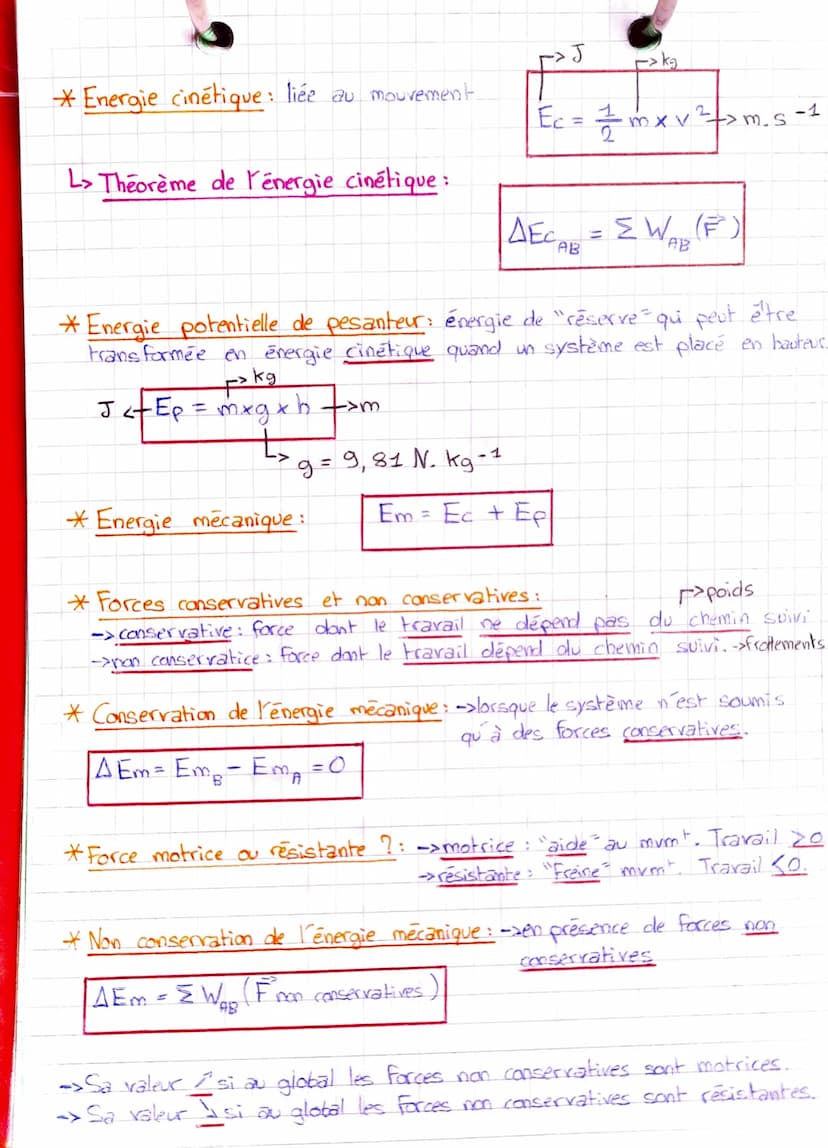 * Energie cinétique : liée au mouvement
-> J
-> kg
Ec = 1/2 m x v² -> m.s⁻¹
↳ Théorème de l'énergie cinétique :
ΔEc_AB = Σ W_AB (F⃗)
* Energie potentielle de pesanteur : énergie de "réserve" qui peut être
transformée en énergie cinétique quand un système est placé en hauteur.
-> kg
J <- Ep = m x g x h -> m
↳ g = 9,81 N.kg⁻¹
* Energie mécanique : Em = Ec + Ep
* Forces conservatives et non conservatives :
-> poids
-> conservative : force dont le travail ne dépend pas du chemin suivi
-> non conservatice : force dont le travail dépend du chemin suivi. -> frottements
* Conservation de l'énergie mécanique : -> lorsque le système n'est soumis
qu'à des forces conservatives.
ΔEm = Em_B - Em_A = 0
* Force motrice ou résistante ? : -> motrice : "aide" au mvmt. Travail ≥0
-> résistante : "Freine" mvmt. Travail ≤0.
* Non conservation de l'énergie mécanique : -> en présence de forces non
conservatives
ΔEm = Σ W_AB (F⃗ non conservatives)
-> Sa valeur ↗ si au global les forces non conservatives sont motrices.
-> Sa valeur ↘ si au global les forces non conservatives sont résistantes.